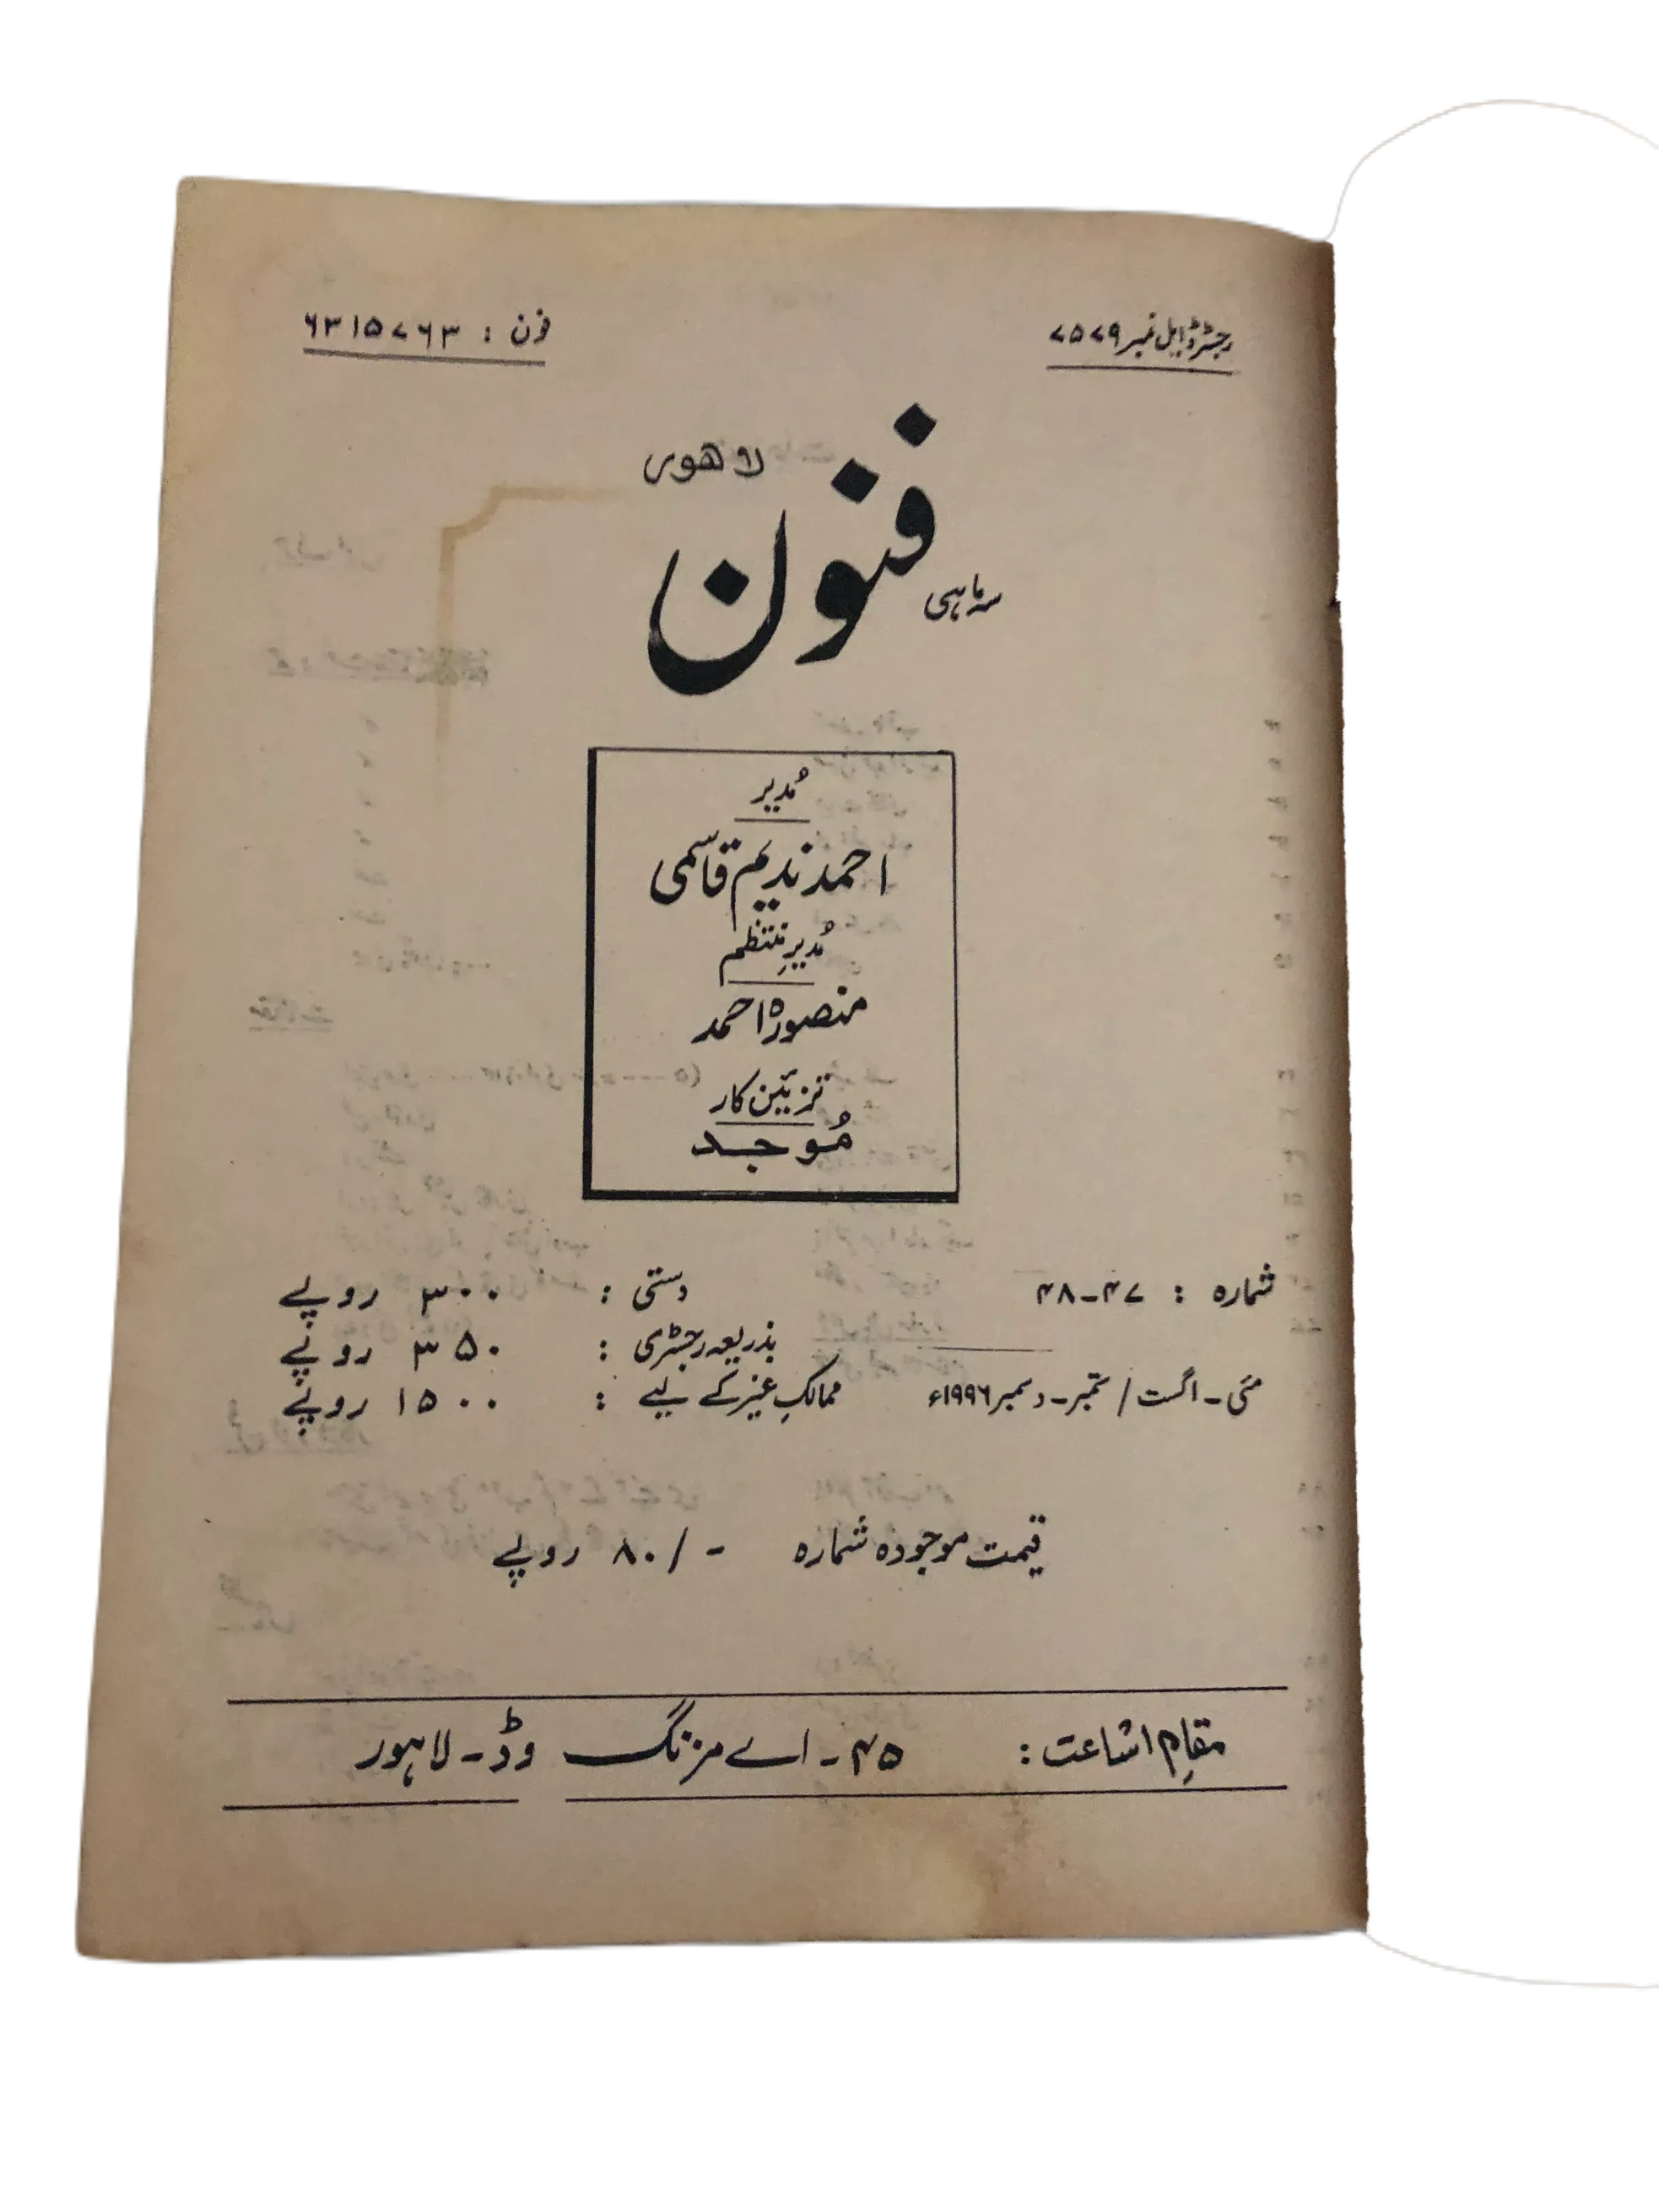 رجسٹرڈ ایل نمبر ۷۵۷۹
فون : ۶۳۱۵۷۶۳
لاہور
فنون
سہ ماہی
مُدیر
احمد ندیم قاسمی
مُدیرِ منتظم
منصورہ احمد
تزئین کار
مُوجد
شمارہ : ۴۷-۴۸
مئی - اگست / ستمبر - دسمبر ۱۹۹۶ء
دستی : ۳۰۰ روپے
بذریعہ رجسٹری : ۳۵۰ روپے
ممالکِ غیر کے لیے : ۱۵۰۰ روپے
قیمت موجودہ شمارہ -/۸۰ روپے
مقامِ اشاعت : ۴۵ - اے مزنگ وڈ - لاہور